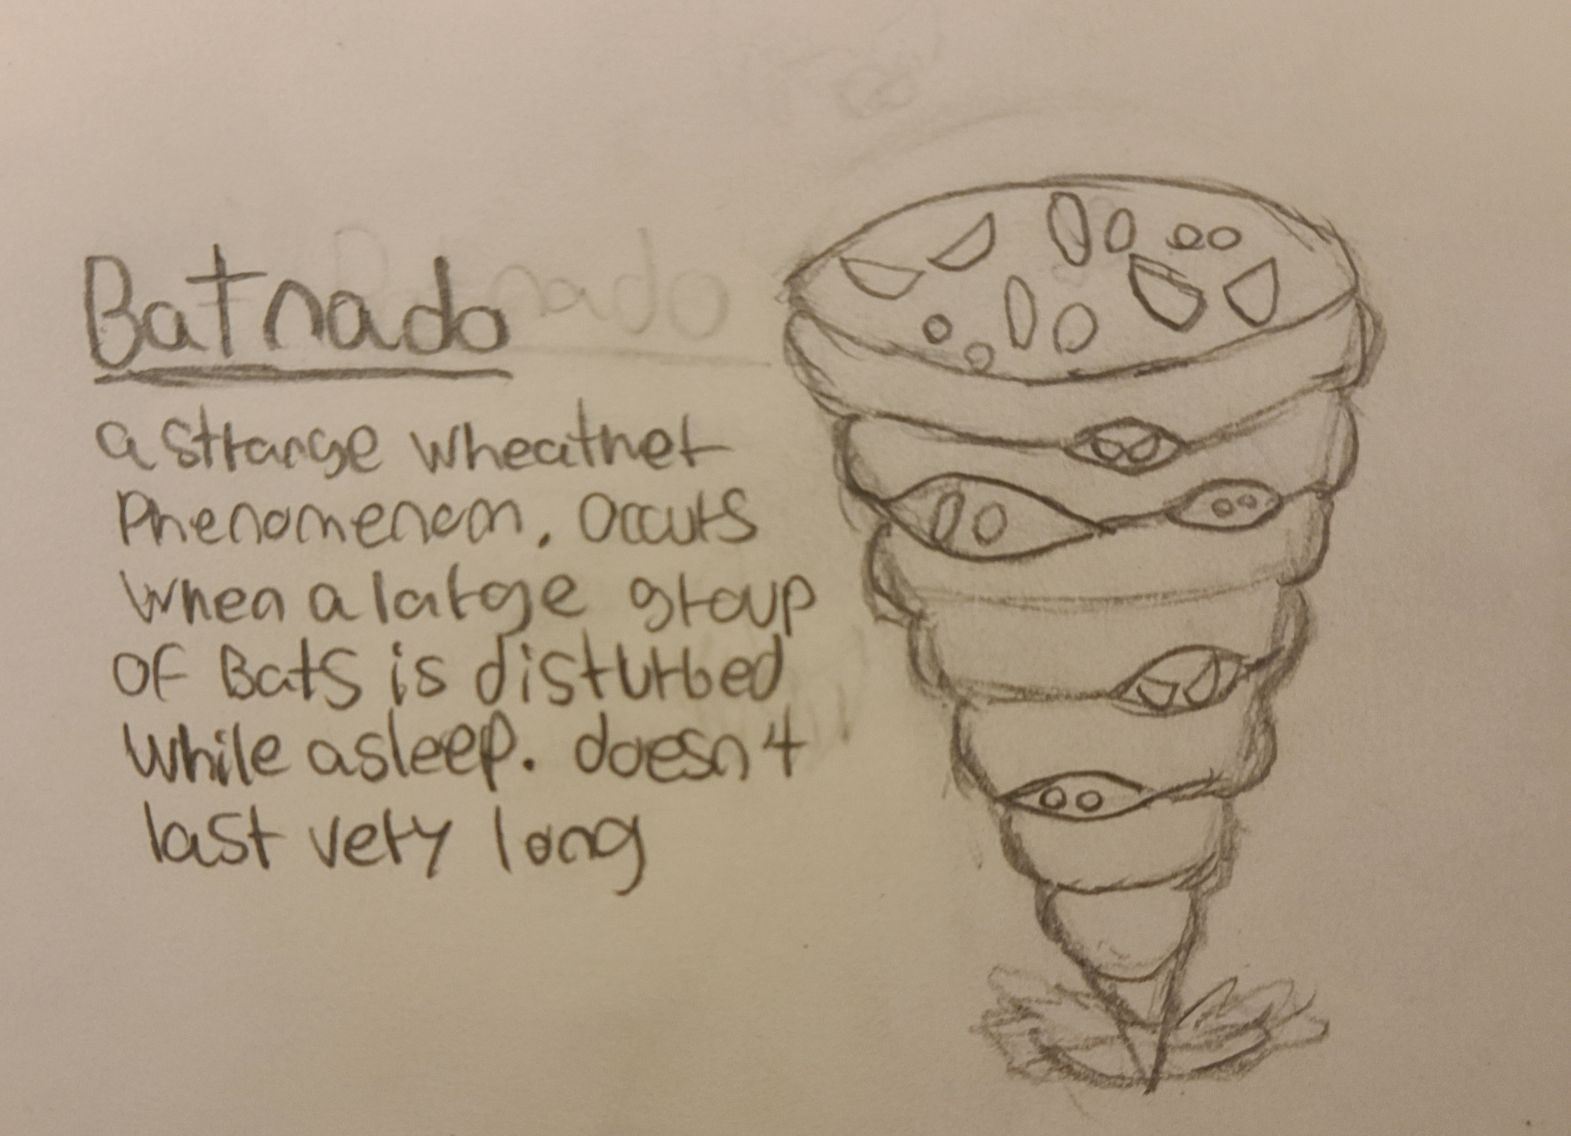 Batnado
a strange wheather
Phenomenom, Occurs
When a large group
Of Bats is disturbed
While asleep. doesn't
last very long